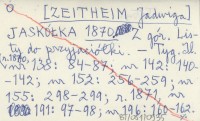 O [ZEITHEIM Jadwiga]
JASKÓŁKA 1870 Z gór. Lis-
ty do przyjaciółki. - Tyg. Il.
(r. 1870) nr 138: 84-87; nr 142: 140-
-142; nr 152: 256-259; nr
155: 298-299; r. 1871, nr
191: 97-98; nr 196: 160-162.